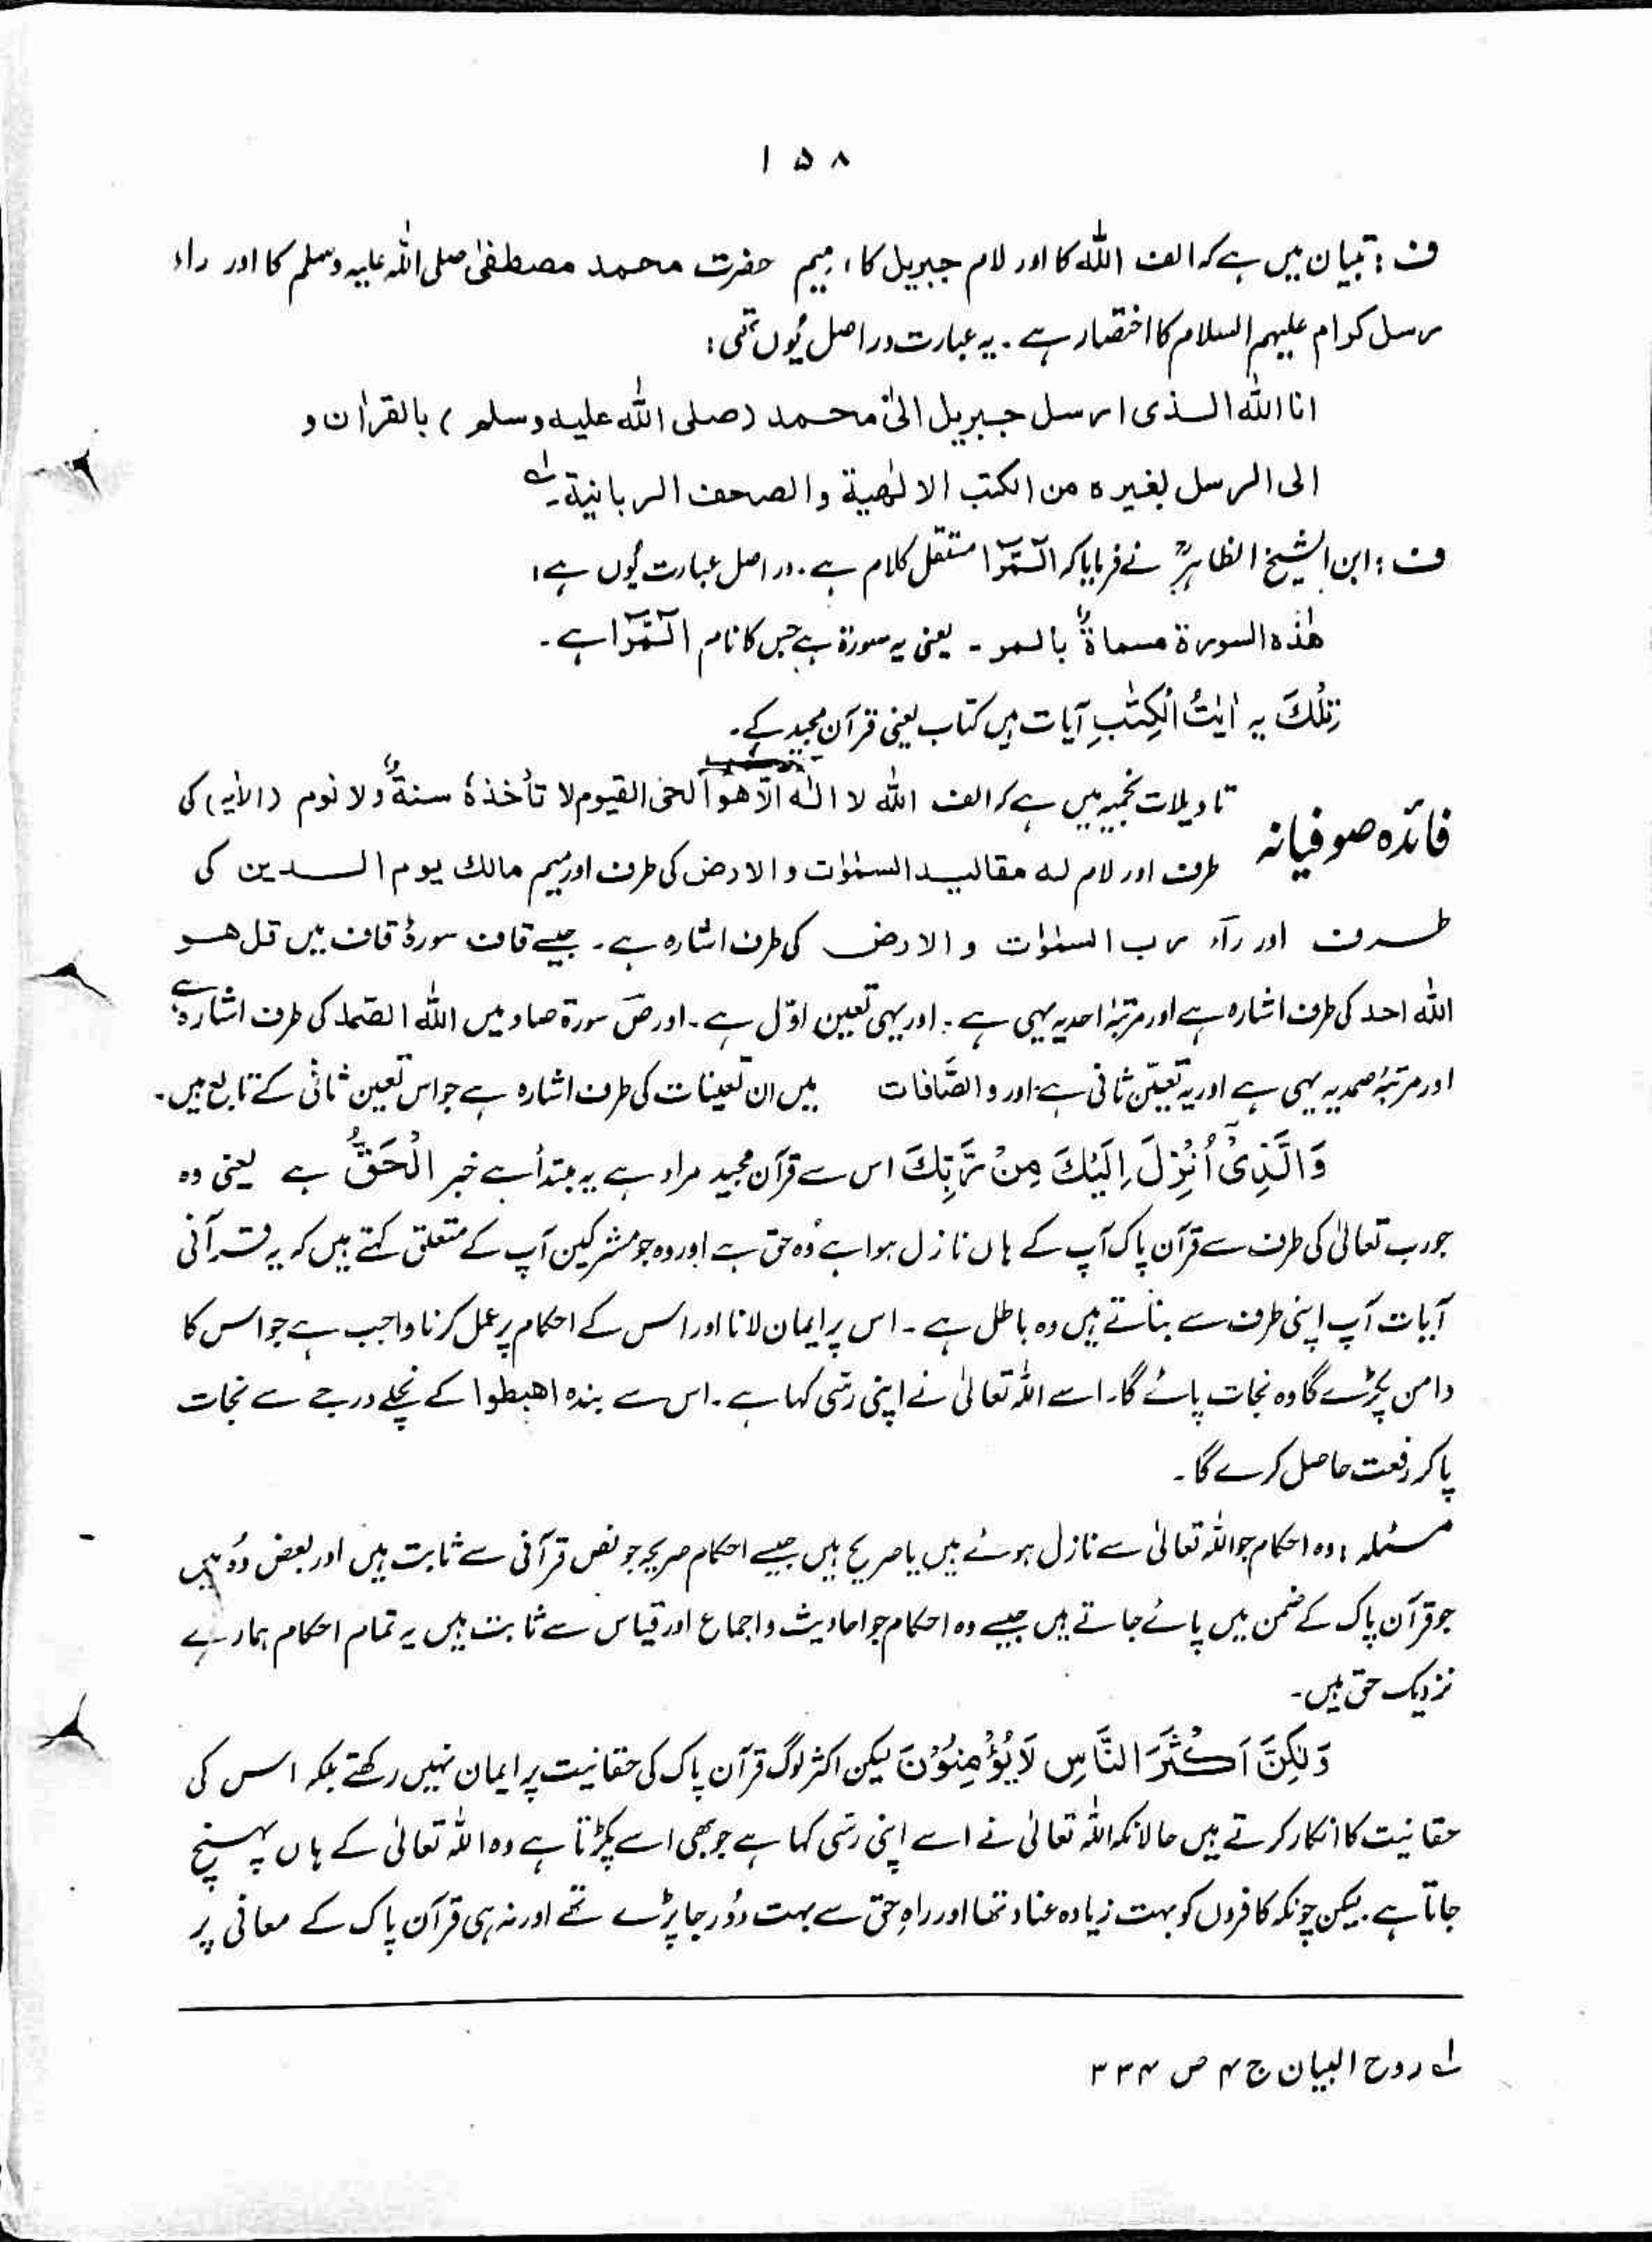 ۱۵۸
ف: تبیان میں ہے کہ الف اللہ کا اور لام جبریل کا، میم حضرت محمد مصطفیٰ صلی اللہ علیہ وسلم کا اور راء
رسل کرام علیہم السلام کا اختصار ہے۔ یہ عبارت دراصل یُوں تھی:
انا اللہ الذی ارسل جبریل الیٰ محمد (صلی اللہ علیہ وسلم) بالقراٰن و
الی الرسل بغیرہ من الکتب الالٰھیة والصحف الربانیة۔ لہ
ف: ابن الشیخ الظاہرؒ نے فرمایا کہ الٓمّٓرٰ مستقل کلام ہے۔ دراصل عبارت یُوں ہے:
ھٰذہ السورة مسماةٌ بالمر۔ یعنی یہ سورۃ ہے جس کا نام الٓمّٓرٰ ہے۔
تِلْكَ یہ اٰیٰتُ الْكِتٰبِ آیات ہیں کتاب یعنی قرآن مجید کے۔
فائدہ صوفیانہ تاویلات نجمیہ میں ہے کہ الف اللہ لا الٰہ الّا ھو الحی القیوم لا تأخذہٗ سنةٌ ولا نوم (الاٰیہ) کی
طرف اور لام لہ مقالید السمٰوٰت والارض کی طرف اور میم مالك یوم الدین کی
طرف اور رآء رب السمٰوٰت والارض کی طرف اشارہ ہے۔ جیسے قاف سورۂ قاف میں قل ھو
اللہ احد کی طرف اشارہ ہے اور مرتبۂ احدیہ یہی ہے۔ اور یہی تعین اوّل ہے۔ اور صٓ سورۃ صاد میں اللہ الصّمد کی طرف اشارہ ہے
اور مرتبۂ صمدیہ یہی ہے اور یہ تعیّن ثانی ہے اور والصّٰافات میں ان تعینات کی طرف اشارہ ہے جو اس تعین ثانی کے تابع ہیں۔
وَالَّذِیْٓ اُنْزِلَ اِلَیْكَ مِنْ رَّبِّكَ اس سے قرآن مجید مراد ہے یہ مبتدأ ہے خبر الْحَقُّ ہے یعنی وہ
جو رب تعالیٰ کی طرف سے قرآن پاک آپ کے ہاں نازل ہوا ہے وُہ حق ہے اور وہ جو مشرکین آپ کے متعلق کہتے ہیں کہ یہ قرآنی
آیات آپ اپنی طرف سے بناتے ہیں وہ باطل ہے۔ اس پر ایمان لانا اور اس کے احکام پر عمل کرنا واجب ہے جو اس کا
دامن پکڑے گا وہ نجات پائے گا۔ اسے اللہ تعالیٰ نے اپنی رسّی کہا ہے۔ اس سے بندہ اھبطوا کے نچلے درجے سے نجات
پاکر رفعت حاصل کرے گا۔
مسئلہ: وہ احکام جو اللہ تعالیٰ سے نازل ہوئے ہیں یا صریح ہیں جیسے احکام صریحہ جو نص قرآنی سے ثابت ہیں اور بعض وُہ ہیں
جو قرآن پاک کے ضمن میں پائے جاتے ہیں جیسے وہ احکام جو احادیث و اجماع اور قیاس سے ثابت ہیں یہ تمام احکام ہمارے
نزدیک حق ہیں۔
وَلٰكِنَّ اَكْثَرَ النَّاسِ لَا یُؤْمِنُوْنَ لیکن اکثر لوگ قرآن پاک کی حقانیت پر ایمان نہیں رکھتے بلکہ اس کی
حقانیت کا انکار کرتے ہیں حالانکہ اللہ تعالیٰ نے اسے اپنی رسّی کہا ہے جو بھی اسے پکڑتا ہے وہ اللہ تعالیٰ کے ہاں پہنچ
جاتا ہے۔ لیکن چونکہ کافروں کو بہت زیادہ عناد تھا اور راہِ حق سے بہت دُور جا پڑے تھے اور نہ ہی قرآن پاک کے معانی پر
لہ روح البیان ج ۴ ص ۳۳۴